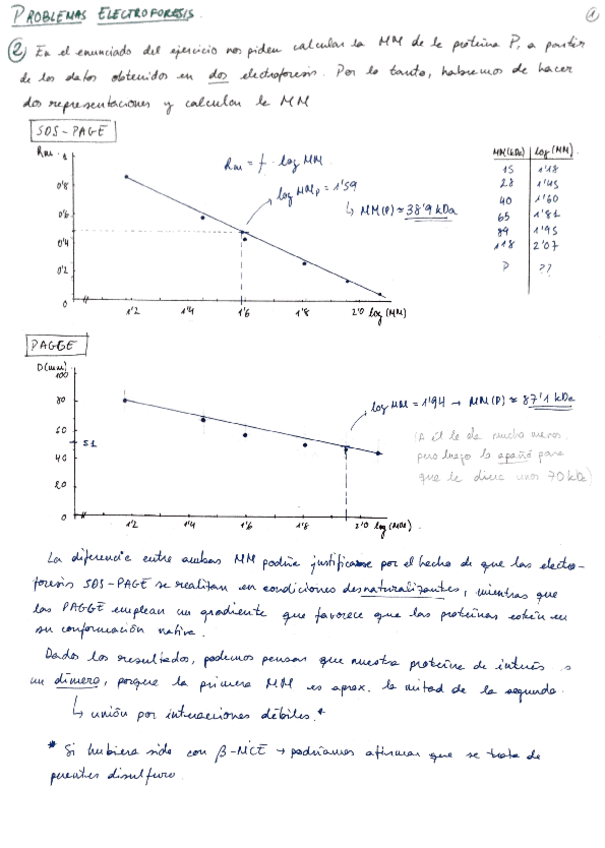 PROBLEMAS ELECTROFORESIS.
1
2 En el enunciado del ejercicio nos piden calcular la MM de la proteína P, a partir
de los datos obtenidos en dos electroforesis. Por lo tanto, habremos de hacer
dos representaciones y calcular la MM
SDS-PAGE
Rm
1
0'8
0'6
0'4
0'2
0
1'2 1'4 1'6 1'8 2'0 log(MM)
Rm = f · log MM
log MMp = 1'59
↳ MM(P) ≈ 38'9 kDa
MM(kDa) log(MM)
15 1'18
28 1'45
40 1'60
65 1'81
89 1'95
118 2'07
P ??
PAGGE
D(mm)
100
80
60
51
40
20
0
1'2 1'4 1'6 1'8 2'0 log(MM).
log MM = 1'94 → MM(P) ≈ 87'1 kDa
(A él le da mucho menos,
pero luego lo apañó para
que le diera unos 70 kDa)
La diferencia entre ambas MM podría justificarse por el hecho de que las electro-
foresis SDS-PAGE se realizan en condiciones desnaturalizantes, mientras que
las PAGGE emplean un gradiente que favorece que las proteínas estén en
su conformación nativa.
Dados los resultados, podemos pensar que nuestra proteína de interés
un dímero, porque la primera MM es aprox. la mitad de la segunda.
↳ unión por interacciones débiles.*
* Si hubiera sido con β-MCE → podríamos afirmar que se trata de
puentes disulfuro.